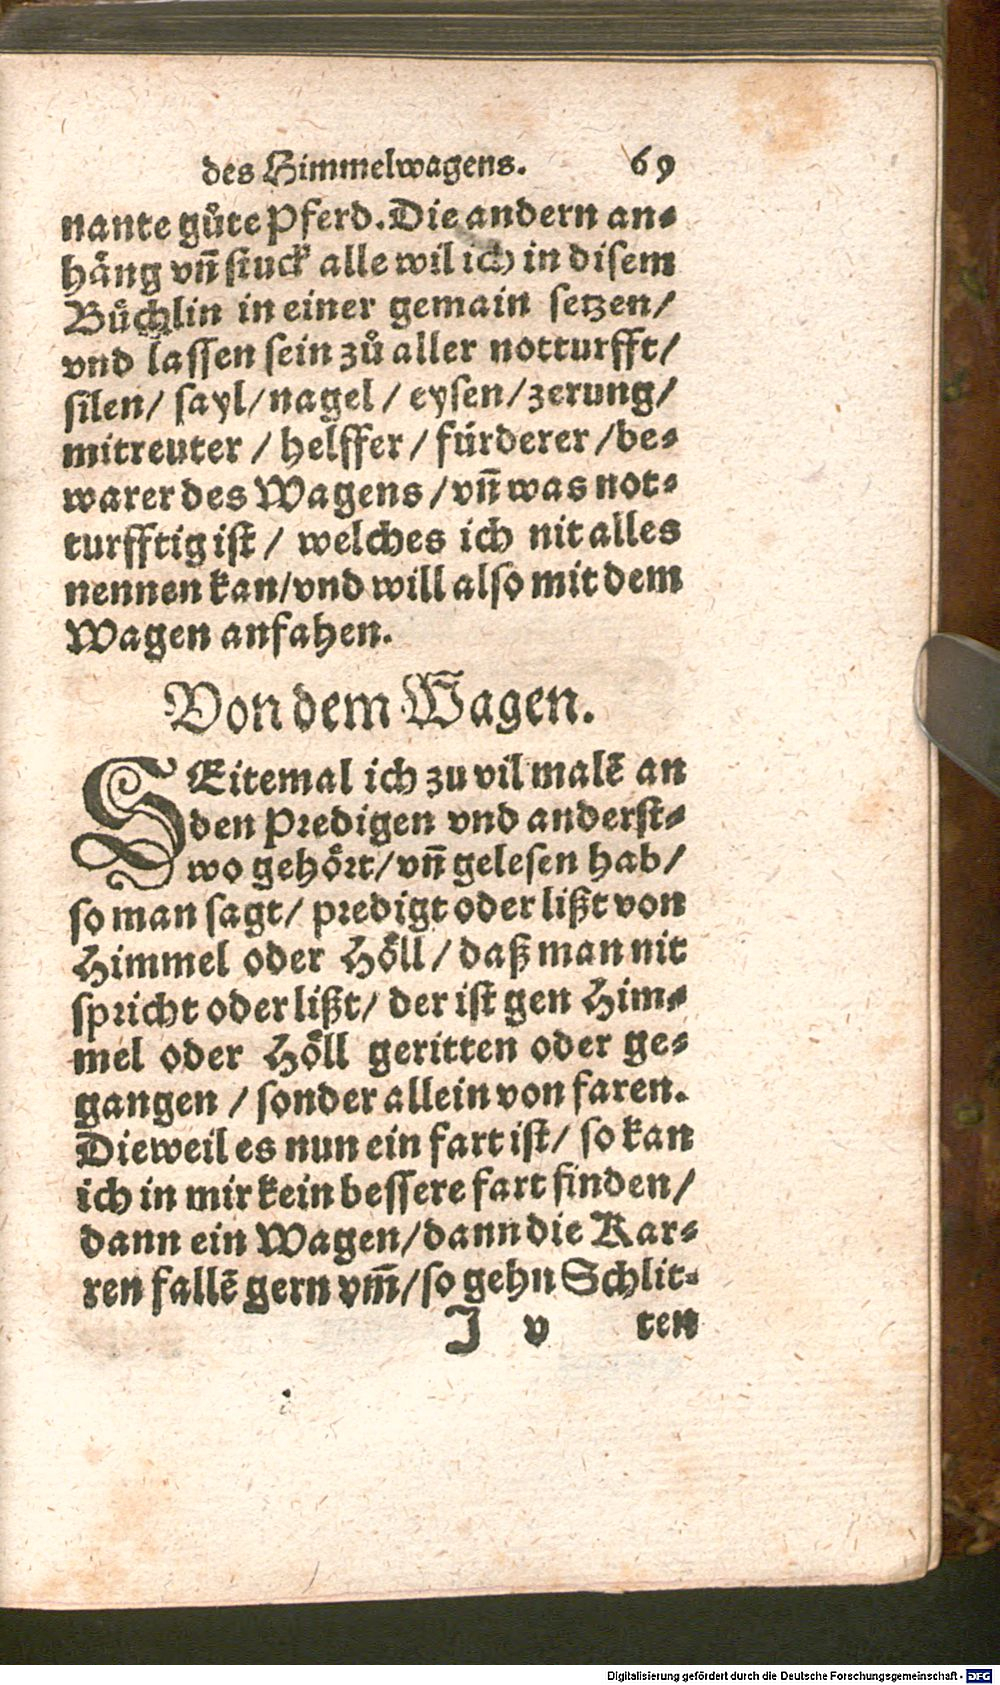 des Himmelwagens. 69
nante gůte Pferd. Die andern an⸗
häng vñ stuck alle wil ich in disem
Bůchlin in einer gemain setzen/
vnd lassen sein zů aller notturfft/
silen/ sayl/ nagel/ eysen/ zerung/
mitreuter/ helffer/ fürderer/ be⸗
warer des Wagens/ vñ was not⸗
turfftig ist/ welches ich nit alles
nennen kan/ vnd will also mit dem
Wagen anfahen.
Von dem Wagen.
SEitemal ich zu vil malẽ an
den Predigen vnd anderst⸗
wo gehört/ vñ gelesen hab/
so man sagt/ predigt oder lißt von
Himmel oder Höll/ daß man nit
spricht oder lißt/ der ist gen Him⸗
mel oder Höll geritten oder ge⸗
gangen/ sonder allein von faren.
Dieweil es nun ein fart ist/ so kan
ich in mir kein bessere fart finden/
dann ein Wagen/ dann die Kar⸗
ren fallẽ gern vm̃/ so gehn Schlit⸗
J v ten
Digitalisierung gefördert durch die Deutsche Forschungsgemeinschaft - DFG